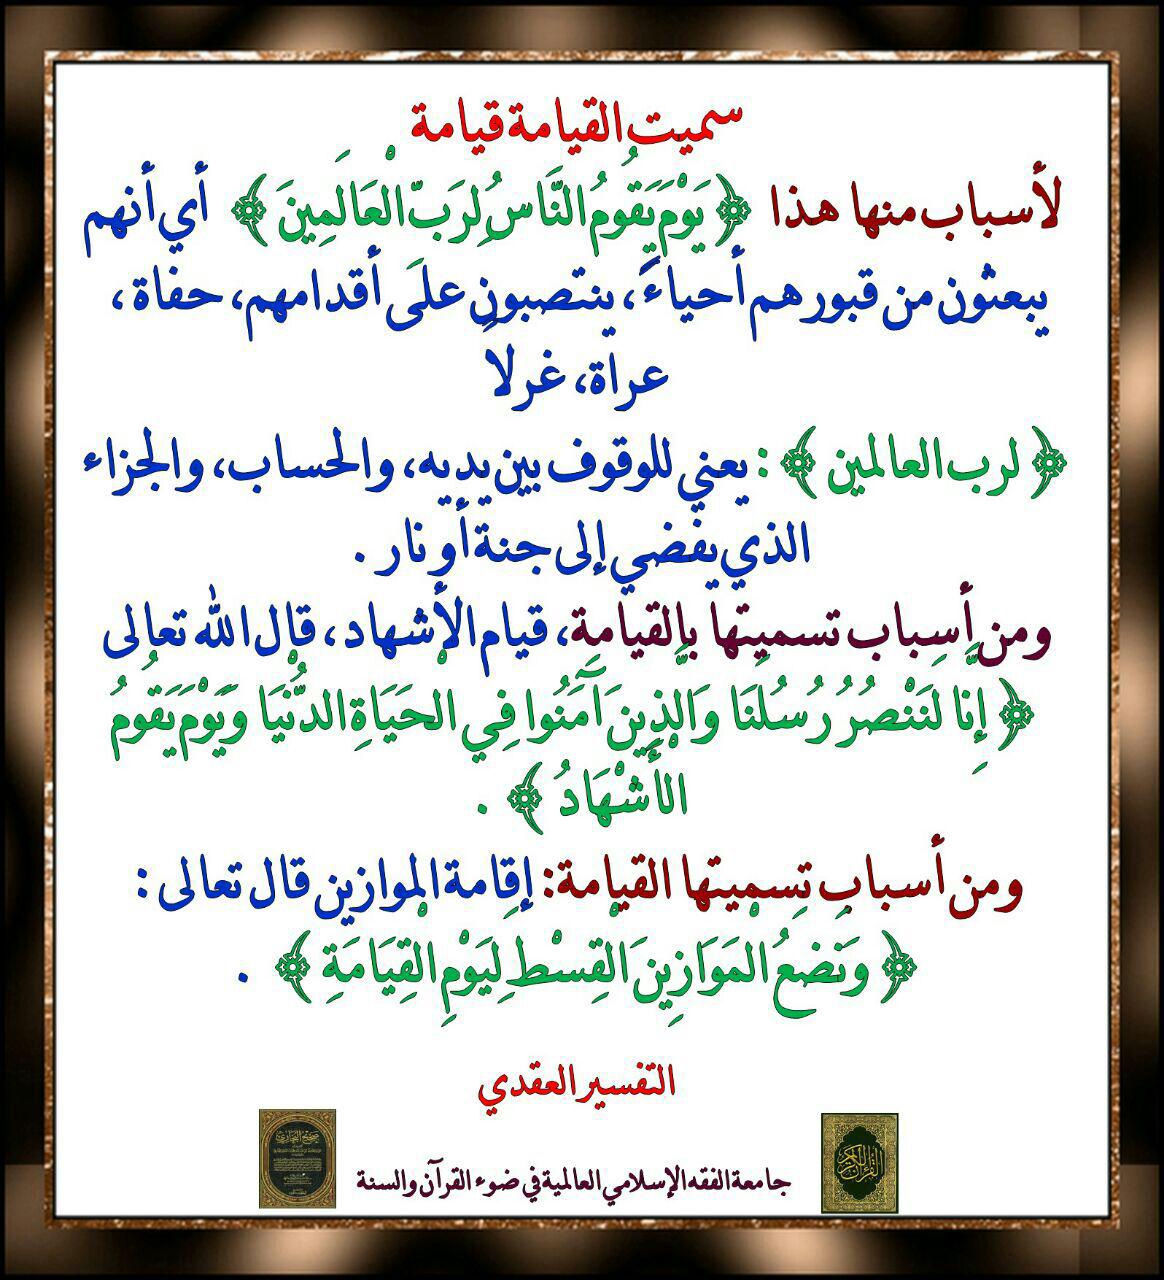 سميت القيامة قيامة
لأسباب منها هذا ﴿ يَوْمَ يَقُومُ النَّاسُ لِرَبِّ الْعَالَمِينَ ﴾ أي أنهم
يبعثون من قبورهم أحياءً، ينتصبون على أقدامهم، حفاة،
عراة، غرلاً
﴿ لرب العالمين ﴾: يعني للوقوف بين يديه، والحساب، والجزاء
الذي يفضي إلى جنة أو نار .
ومن أسباب تسميتها بالقيامة، قيام الأشهاد، قال الله تعالى
﴿ إِنَّا لَنَنْصُرُ رُسُلَنَا وَالَّذِينَ آَمَنُوا فِي الْحَيَاةِ الدُّنْيَا وَيَوْمَ يَقُومُ
الْأَشْهَادُ ﴾ .
ومن أسباب تسميتها القيامة: إقامة الموازين قال تعالى :
﴿ وَنَضَعُ الْمَوَازِينَ الْقِسْطَ لِيَوْمِ الْقِيَامَةِ ﴾ .
التفسير العقدي
جامعة الفقه الإسلامي العالمية في ضوء القرآن والسنة
صحيح البخاري
القرآن الكريم